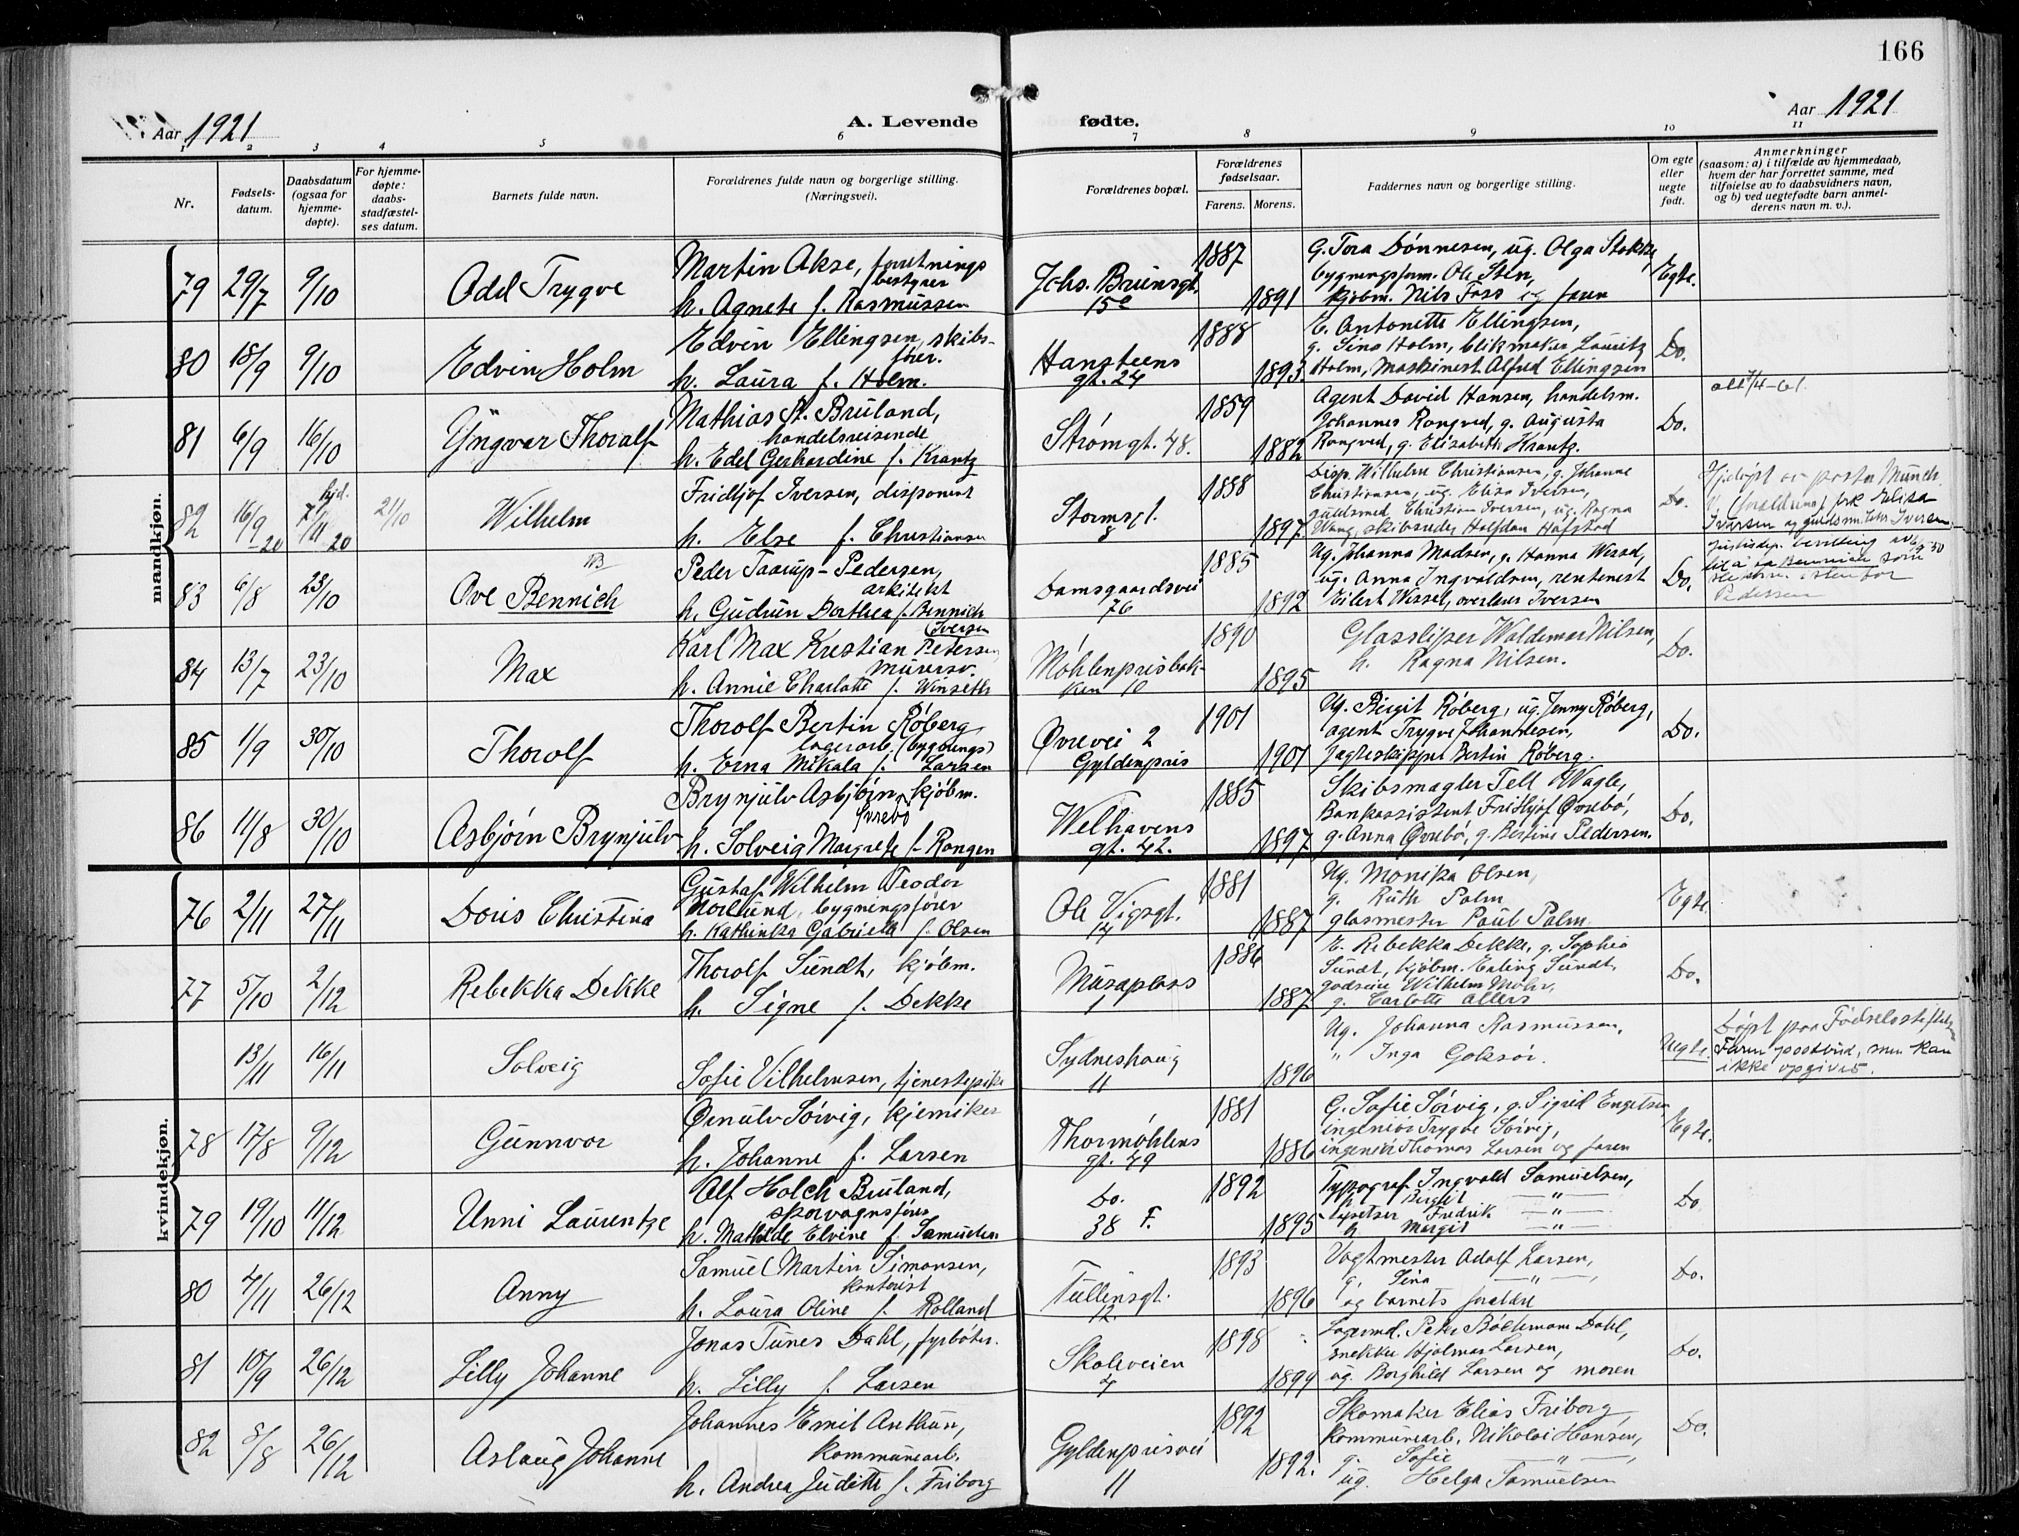 166
Aar 1921
A. Levende fødte.
Aar 1921
1 2 3 4 5 6 7 8 9 10 11
Nr.
Fødsels-
datum.
Daabsdatum
(ogsaa for
hjemme-
døpte).
For hjemme-
døpte:
daabs-
stadfæstel-
ses datum.
Barnets fulde navn.
Forældrenes fulde navn og borgerlige stilling.
(Næringsvei).
Forældrenes bopæl.
Forældrenes
fødselsaar.
Farens. Morens.
Faddernes navn og borgerlige stilling.
Om egte
eller
uegte
født.
Anmerkninger
(saasom: a) i tilfælde av hjemmedaab,
hvem der har forrettet samme, med
tilføielse av to daabsvidners navn,
og b) ved uegtefødte barn anmel-
derens navn m. v.).
mandkjøn.
79 29/7 9/10
Odd Trygve
Martin Akse, forretnings
bestyrer
h. Agnete f. Rasmussen
Jchs. Bruns gt.
15e
1887
1891
G. Tora Dønnesen, ug. Olga Stokke,
bygningsform. Ole Sten,
kjøbm. Nils Foss og faren
Egte.
80 18/9 9/10
Edvin Holm
Edvin Ellingsen, skibs-
fører.
h. Laura f. Holm.
Hansteens
gt. 24
1888
1893.
E. Antonette Ellingsen,
g. Sina Holm, blikmaker Lauritz
Holm, Maskinest Alfred Ellingsen
Do.
81 6/9 16/10
Yngvar Thoralf
Mathias St. Bruland,
handelsreisende
h. Edel Gerhardine f. Krantz
Strømgt. 48.
1859
1882
Agent David Hansen, handelsm.
Johannes Rongved, g. Augusta
Rongved, g. Elisabeth Krantz.
Do.
att 7/4-61.
82 16/9 -20 hjd. 7/11 20 21/10
Wilhelm
Fridtjof Iversen, disponent
h. Else f. Christiansen
Stormsgt.
8
1888
1897
Disp. Wilhelm Christiansen, g. Johanne
Christiansen, ug. Elisa Iversen,
guldsmed Christian Iversen, ug. Ragna
Wang, skibsreder Halfdan Hafstad
Do.
Hjdøpt av pastor Munch
frk Elisa
Iversen og guldsm. Iversen
83 6/8 23/10
NB
Ove Bennich
Peder Taarup-Pedersen,
arkitekt
h. Gudrun Dorthea f. Bennich
Damsgaardsvei
76
1885
1892
Ug. Johanna Madsen, g. Hanna Wessel,
ug. Anna Ingvaldsen, rentenist
Eilert Wessel, overlærer Iversen
Do.
Justisdep. bevilling av
til å ta Bennich som
slektsn. istenfor
Pedersen
84 13/7 23/10
Max
(Iversen
Karl Max Kristian Petersen
murersv.
h. Annie Charlotte f. Winseth
Møhlenprisbak-
ken 10
1890
1895
Glassliper Waldemar Nilsen,
h. Ragna Nilsen.
Do.
85 1/9 30/10
Thorolf
Thorolf Bertin Røberg
lagerarb. (bygnings)
h. Erna Mikala f. Larsen
Øvrevei 2
Gyldenpris
1901
1901
Ug. Birgit Røberg, ug. Jenny Røberg,
agent Trygve Johannesen,
Jagteskipper Bertin Røberg.
Do.
86 11/8 30/10
Asbjørn Brynjulv
Brynjulv Asbjørn kjøbm.
Øvrebø
h. Solveig Margrete f. Rongen
Welhavens
gt. 42.
1885
1897
Skibsmægler Tell Wagle,
Bankassistent Fridtjof Øvrebø,
g. Anna Øvrebø, g. Bertine Pedersen.
Do.
kvindekjøn.
76 2/11 27/11
Doris Christina
Gustaf Wilhelm Teodor
Norlund, bygningsfører
h. Kathinka Gabriela f. Olsen
Ole Vigsgt.
14
1881
1887
Ug. Monika Olsen,
g. Ruth Palm
glasmester Paul Palm
Egte.
77 5/10 2/12
Rebekka Dekke
Thorolf Sundt, kjøbm.
h. Signe f. Dekke
Museplass
1
1886
1887
E. Rebekka Dekke, g. Sophie
Sundt, kjøbm. Erling Sundt,
godseier Wilhelm Mohr,
g. Carlotte Allers
Do.
13/11 16/11
Solveig
Sofie Vilhelmsen, tjenestepike
Sydneshaug
11
1896
Ug. Johanna Rasmussen,
" Inga Goksør.
Uegte.
Døpt paa Fødselsstiftelsen
Faren postbud, men kan
ikke opgives.
78 17/8 9/12
Gunnvor
Ørnulv Sørvig, kjemiker
h. Johanne f. Larsen
Thormøhlens
gt. 49
1881
1886
G. Sofie Sørvig, g. Sigrid Engelsen
ingeniør Trygve Sørvig,
ingeniør Thomas Larsen og faren
Egte.
79 19/10 11/12
Unni Laurentze
Alf Holck Bruland,
sporvognsfører
h. Mathilde Elvine f. Samuelsen
Do.
38 F.
1892
1895
Typograf Ingvald Samuelsen,
h. Bergit — " —
Typsetser Fredrik — " —
h. Margit — " —
Do
80 4/11 26/12
Anny
Samuel Martin Simonsen,
kontorist
h. Laura Oline f. Rolland
Tullinsgt.
12.
1893
1896
Vogtmester Adolf Larsen,
g. Sina — " —,
og barnets forældre
Do.
81 10/9 26/12
Lilly Johanne
Jonas Tunes Dahl, fyrbøter.
h. Lilly f. Larsen
Skoleveien
4
1898
1899
Lagermd. Peter Bøckmann Dahl,
snekker Hjalmar Larsen,
ug. Borghild Larsen og moren
Do.
82 8/8 26/12
Aslaug Johanne
Johannes Emil Anthun,
kommunearb.
h. Andrea Juditte f. Friborg
Gyldenprisvei
11
1892
1892.
Skomaker Elias Friborg
Kommunearb. Nikolai Hansen,
g. Sofie — " —
ug. Helga Samuelsen
Do.